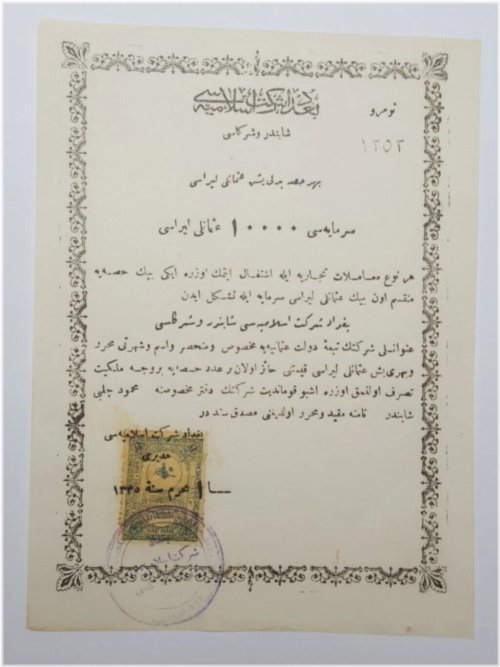 بغداد شركت اسلاميه‌سى
نومرو
شابندر وشركاسى
١٢٥٢
بهر حصه بدلى بش عثمانلى ليراسى
سرمايه‌سى ١٠٠٠٠ عثمانلى ليراسى
هر نوع معاملات تجاريه ايله اشتغال ايتمك اوزره ايكى بيك حصه‌يه
منقسم اون بيك عثمانلى ليراسى سرمايه ايله تشكل ايدن
بغداد شركت اسلاميه‌سى شابندر وشركاسى
عنوانلى شركتك تبعهٔ دولت عثمانيه‌يه مخصوص ومنحصر واسم وشهرتى محرر
وبهرى بش عثمانلى ليراسى قيمتنى حائز اولان ر عدد حصه‌يه بروجه ملكيت
تصرف اولنمق اوزره اشبو قومانديت شركتك دفتر مخصوصنه محمود چلبى
شابندر نامنه مقيد ومحرر اولديغنى مصدق سنددر
بغداد شركت اسلاميه‌سى
مديرى
١ محرم سنة ١٣٣٥